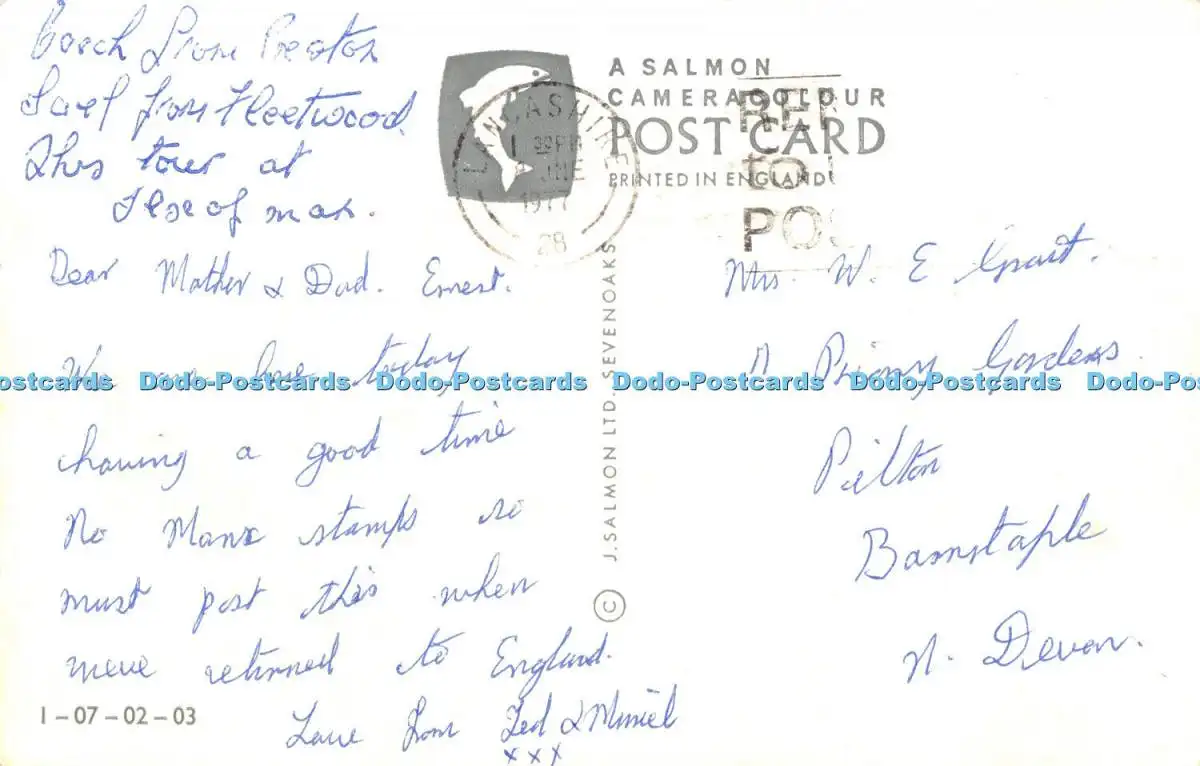 Coach from Preston
Sail from Fleetwood.
This tour at
Isle of man.
Dear Mother & Dad. Ernest.
We are here today
having a good time
No Manx stamps so
must post this when
weve returned to England.
Love from Ted & Muriel
x x x
1-07-02-03
A SALMON
CAMERACOLOUR
POST CARD
PRINTED IN ENGLAND
LANCASHIRE
JUNE
1977
28
to
POS
J. SALMON LTD. SEVENOAKS
©
Mrs. W. E Grant.
Priory Gardens
Pilton
Barnstaple
N. Devon.
Dodo-Postcards Dodo-Postcards Dodo-Postcards Dodo-Postcards Dodo-Postcards